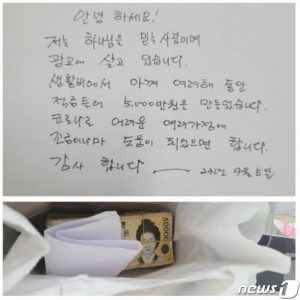 안녕 하세요!
저는 하나님은 믿는 사람이며
광교에 살고 있습니다.
생활비에서 아껴 여러해 동안
적금들어 5,000만원은 만들었습니다.
코로나로 어려운 여러가정에
조금이나마 도움이 되었으면 합니다.
감사 합니다
9月 5일
50000
news1